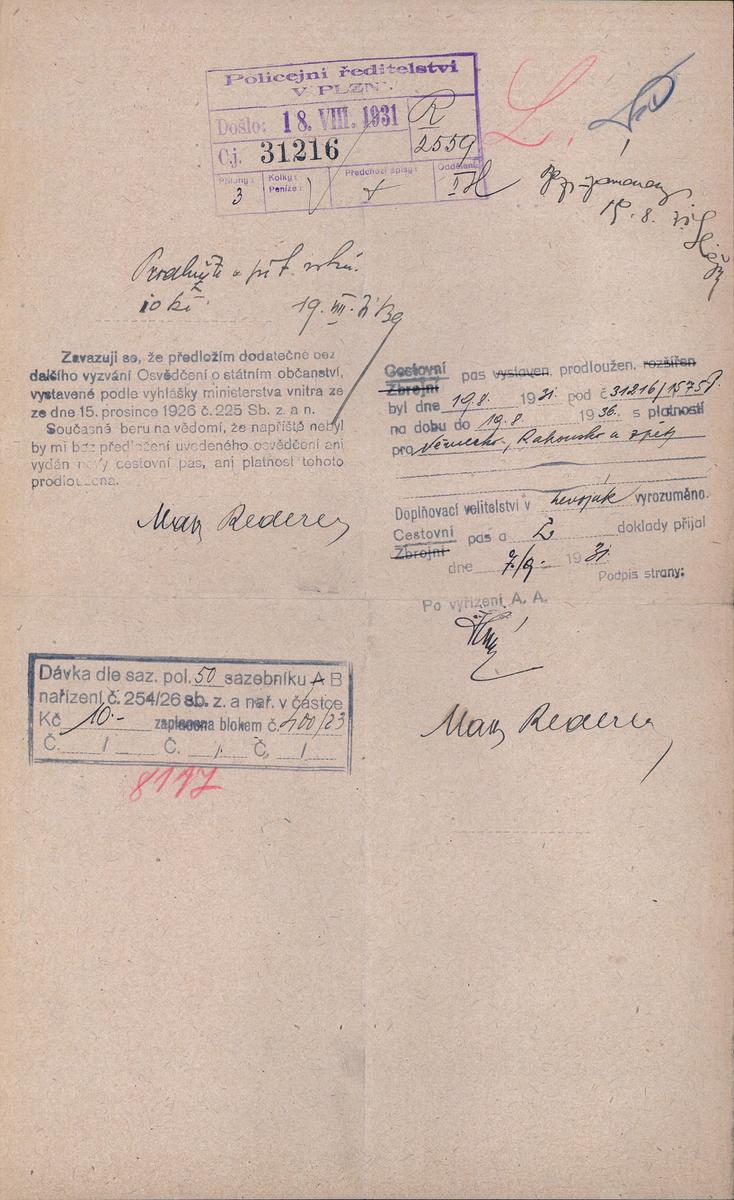 Policejní ředitelství
V PLZNI
Došlo: 18. VIII. 1931
R 2559
Čj. 31216
Přílohy: 3
Kolky:
Peníze:
Předchozí spisy:
Oddělení:
L.
10 Kč.
19. VIII. 31
Zavazuji se, že předložím dodatečně bez
dalšího vyzvání Osvědčení o státním občanství,
vystavené podle vyhlášky ministerstva vnitra ze
ze dne 15. prosince 1926 č. 225 Sb. z. a n.
Současně beru na vědomí, že napříště nebyl
by mi bez předložení uvedeného osvědčení ani
vydán nový cestovní pas, ani platnost tohoto
prodloužena.
Max Rederer
Cestovní
Zbrojní
pas vystaven, prodloužen, rozšířen
byl dne 19.8. 1931. pod č 31216/1575
na dobu do 19.8 1936. s platností
pro Německo, Rakousko a zpět
Doplňovací velitelství v vyrozuměno.
Cestovní
Zbrojní
pas a doklady přijal
dne 7/9. 1931.
Podpis strany:
Po vyřízení A. A.
Max Rederer
Dávka dle saz. pol. 50 sazebníku A B
nařízení č. 254/26 sb. z. a nař. v částce
Kč 10.- zaplacena blokem č. 400/23
Č. / Č. / Č. /
8117